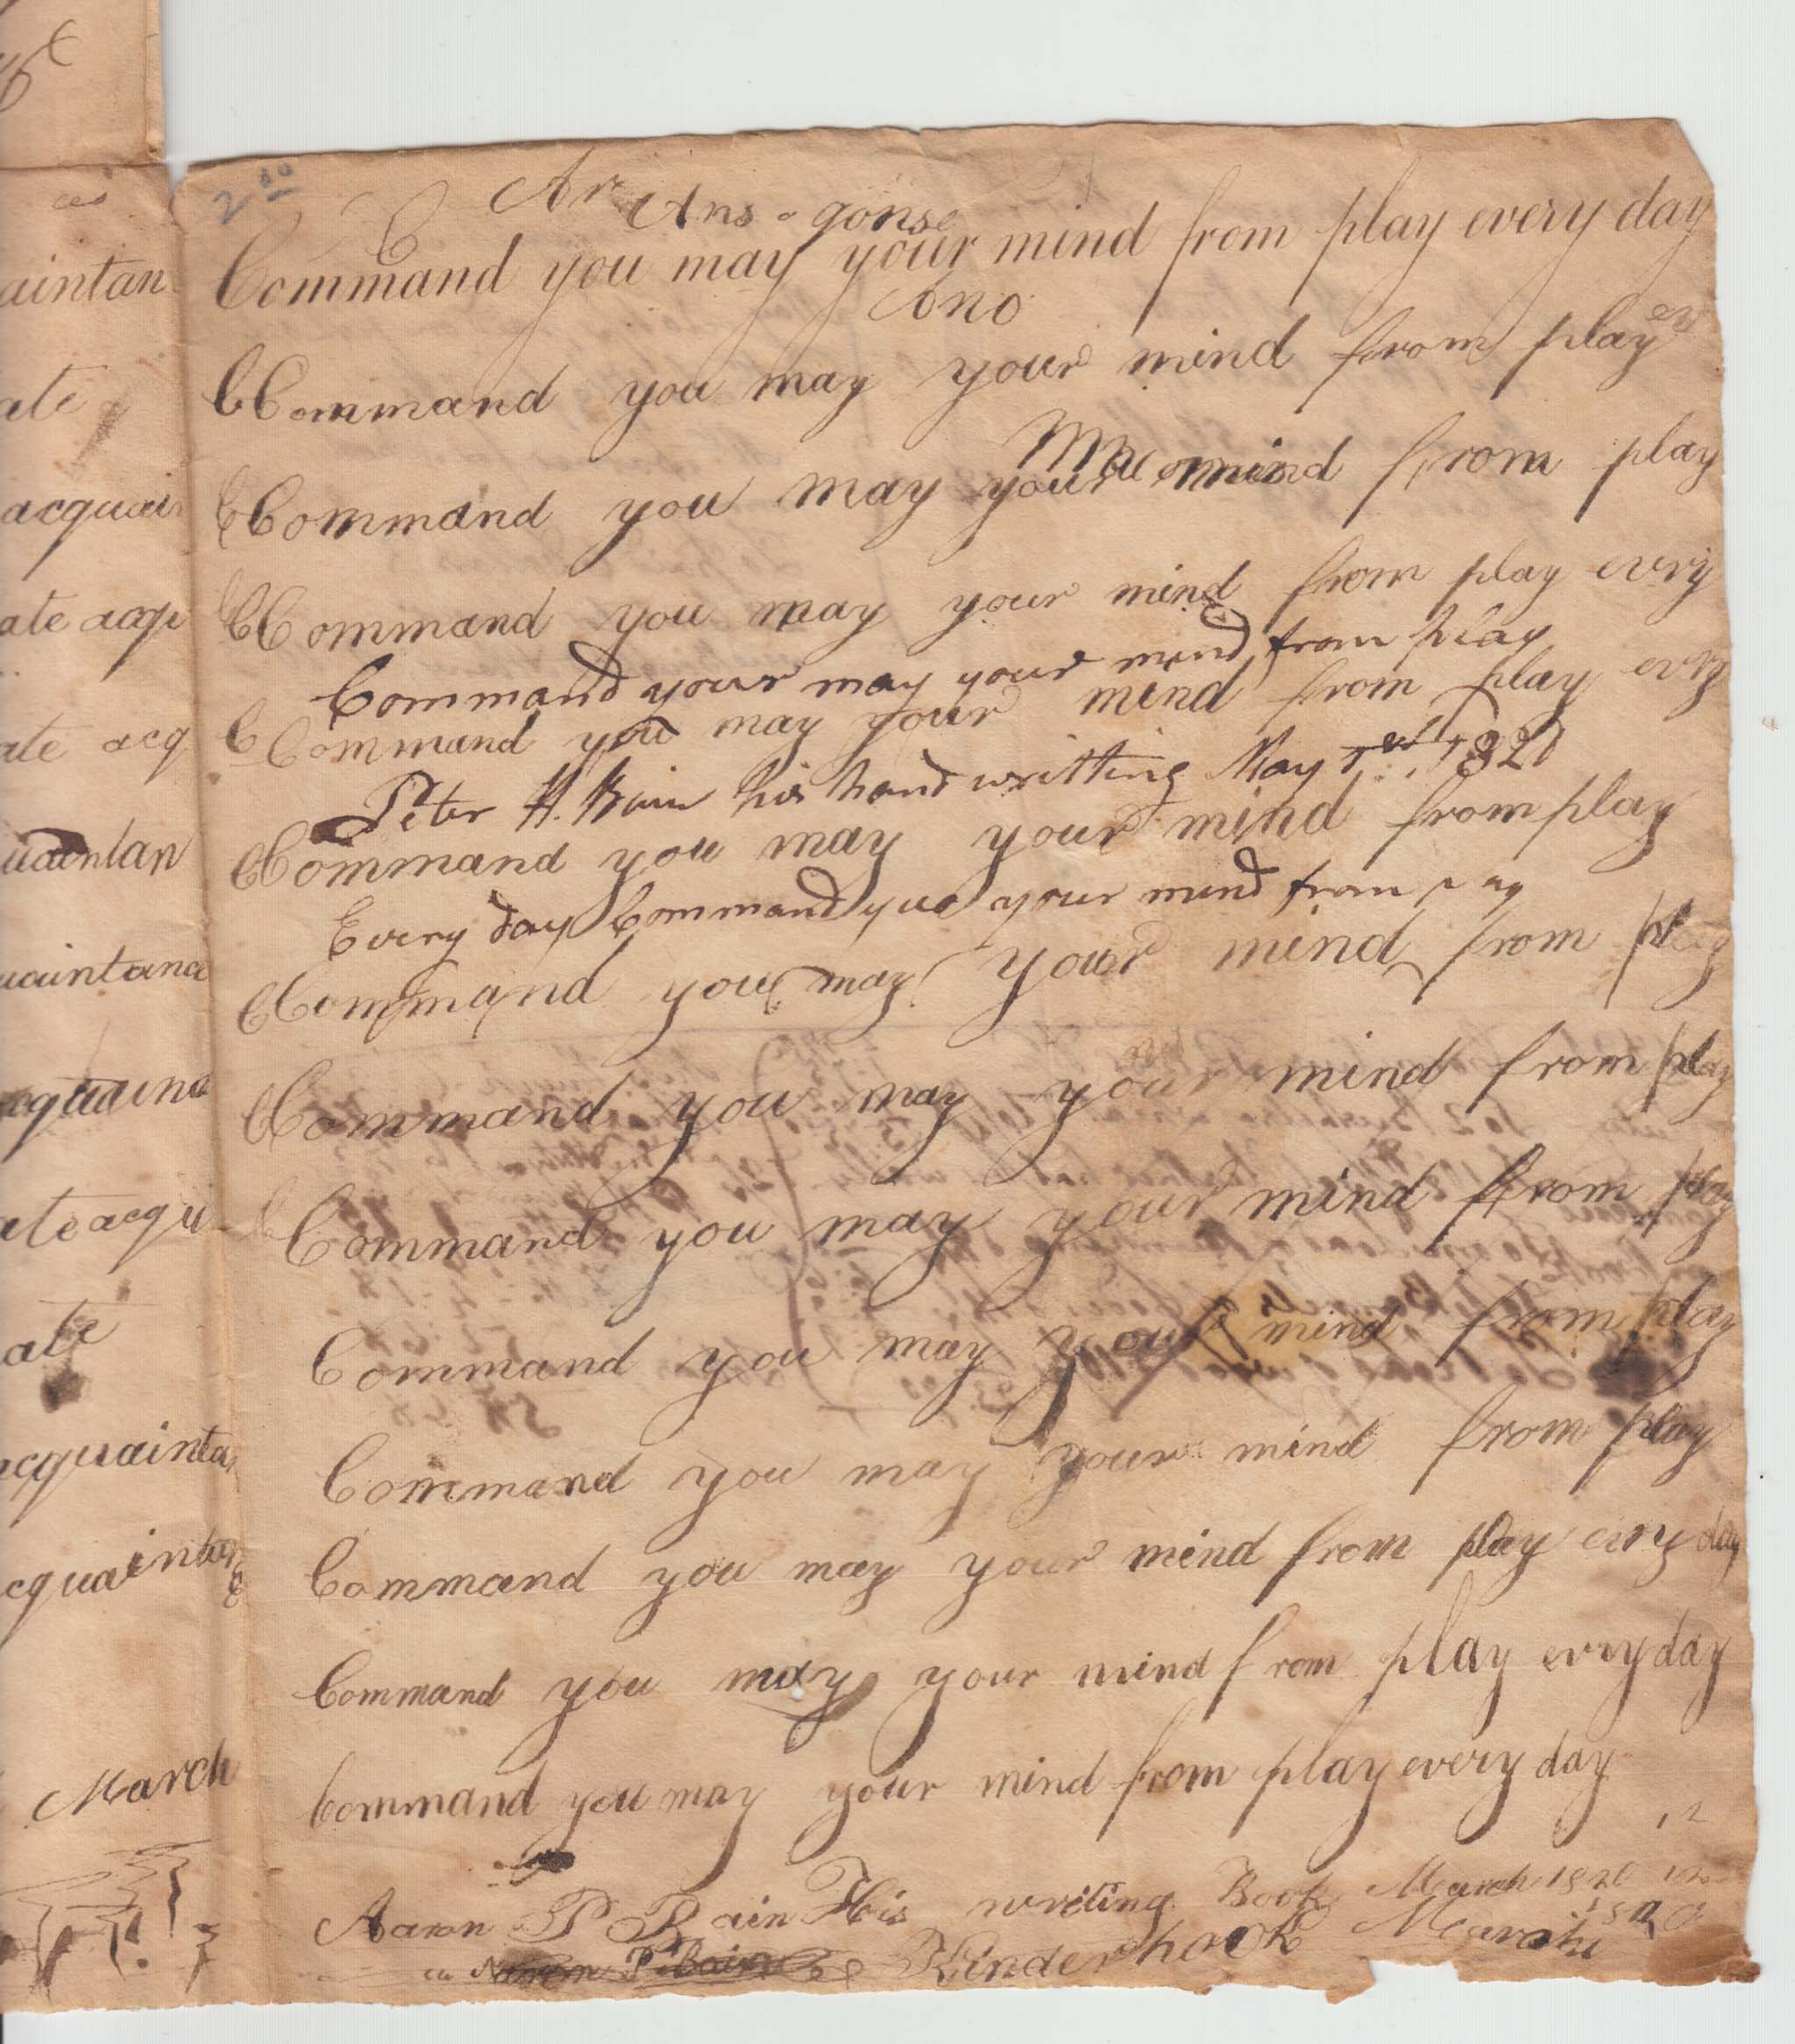 aintan
ate
acquai
ate acqu
ate acq
uaintan
uaintanc
acquainc
ate acqu
ate
acquaintan
cquaintan
March
2 00
Ar Ans gonse
Command you may your mind from play every day
ono
CCommand you may your mind from play ev
CCommand you may your mind from play
CCommand you may your mind from play evry
Command your may your mind from play
CCommand you may your mind from play evry
Peter H. Bain his hand writting May 1st 1820
CCommand you may your mind from play
Every day Command you your mind from
CCommand you may your mind from play
CCommand you may your mind from play
Command you may your mind from play
Command you may your mind from play
Command you may your mind from play
Command you may your mind from play evry day
Command you may your mind from play evry day
Command you may your mind from play every day
Aaron P Bain His writing Book March 1820
Aaron P Bain Kinderhook March